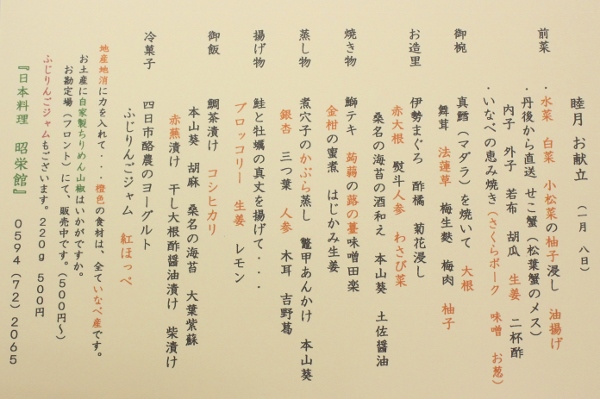 睦月 お献立 （一月 八日）
前菜 ・水菜 白菜 小松菜の柚子浸し 油揚げ
・丹後から直送 せこ蟹（松葉蟹のメス）
内子 外子 若布 胡瓜 生姜 二杯酢
・いなべの恵み焼き（さくらポーク 味噌 お葱）
御椀 真鱈（マダラ）を焼いて 大根
舞茸 法蓮草 梅生麩 梅肉 柚子
お造里 伊勢まぐろ 酢橘 菊花浸し
赤大根 熨斗人参 わさび菜
桑名の海苔の酒和え 本山葵 土佐醤油
焼き物 鰤テキ 蒟蒻の蕗の薹味噌田楽
金柑の蜜煮 はじかみ生姜
蒸し物 煮穴子のかぶら蒸し 鼈甲あんかけ 本山葵
銀杏 三つ葉 人参 木耳 吉野葛
揚げ物 鮭と牡蠣の真丈を揚げて・・・
ブロッコリー 生姜 レモン
御飯 鯛茶漬け コシヒカリ
本山葵 胡麻 桑名の海苔 大葉紫蘇
赤蕪漬け 干し大根酢醤油漬け 柴漬け
冷菓子 四日市酪農のヨーグルト
ふじりんごジャム 紅ほっぺ
地産地消に力を入れて・・・橙色の食材は、全ていなべ産です。
お土産に自家製ちりめん山椒はいかがですか。
お勘定場（フロント）にて、販売中です。（５００円〜）
ふじりんごジャムもございます。２２０ｇ ５００円
『日本料理 昭栄館』 ０５９４（７２）２０６５